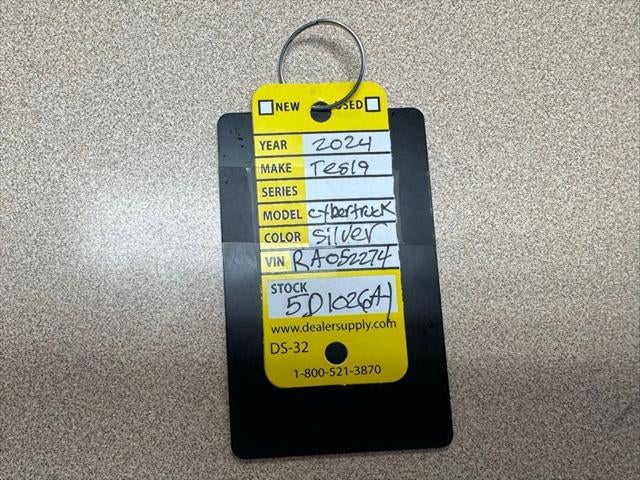 NEW USED
YEAR 2024
MAKE Tesla
SERIES
MODEL cybertruck
COLOR Silver
VIN RA052274
STOCK
5D1026A1
www.dealersupply.com
DS-32
1-800-521-3870